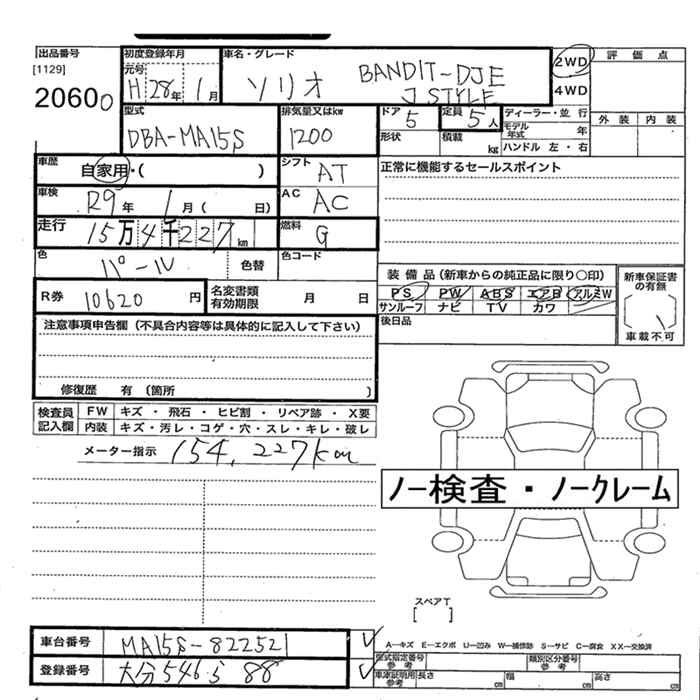 出品番号
[1129]
20600
初度登録年月
元号
H 28年 1月
車名・グレード
ソリオ BANDIT-DJE
J STYLE
2WD
4WD
評価点
外装 内装
型式
DBA-MA15S
排気量又はkw
1200
ドア
5
定員
5人
形状
積載
kg
ディーラー・並行
モデル年式 年
ハンドル 左・右
車歴
自家用・( )
シフト
AT
正常に機能するセールスポイント
車検
R9年 1月( 日)
AC
AC
走行
15万4千227km
燃料
G
色
パール
色替
色コード
R券
10620円
名変書類
有効期限 月 日
装備品(新車からの純正品に限り○印)
PS PW ABS エアB アルミW
サンルーフ ナビ TV カワ
後日品
新車保証書
の有無
車載不可
注意事項申告欄(不具合内容等は具体的に記入して下さい)
修復歴 有(箇所 )
検査員
記入欄
FW キズ・飛石・ヒビ割・リペア跡・X要
内装 キズ・汚レ・コゲ・穴・スレ・キレ・破レ
メーター指示 154,227km
ノー検査・ノークレーム
スペアT
[ ]
車台番号
MA15S-822521
登録番号
大分546ら88
A－キズ E－エクボ U－凹み W－補修跡 S－サビ C－腐食 XX－交換済
型式指定番号
参考
類別区分番号
参考
車庫証明用
参考
長さ cm
幅 cm
高さ cm